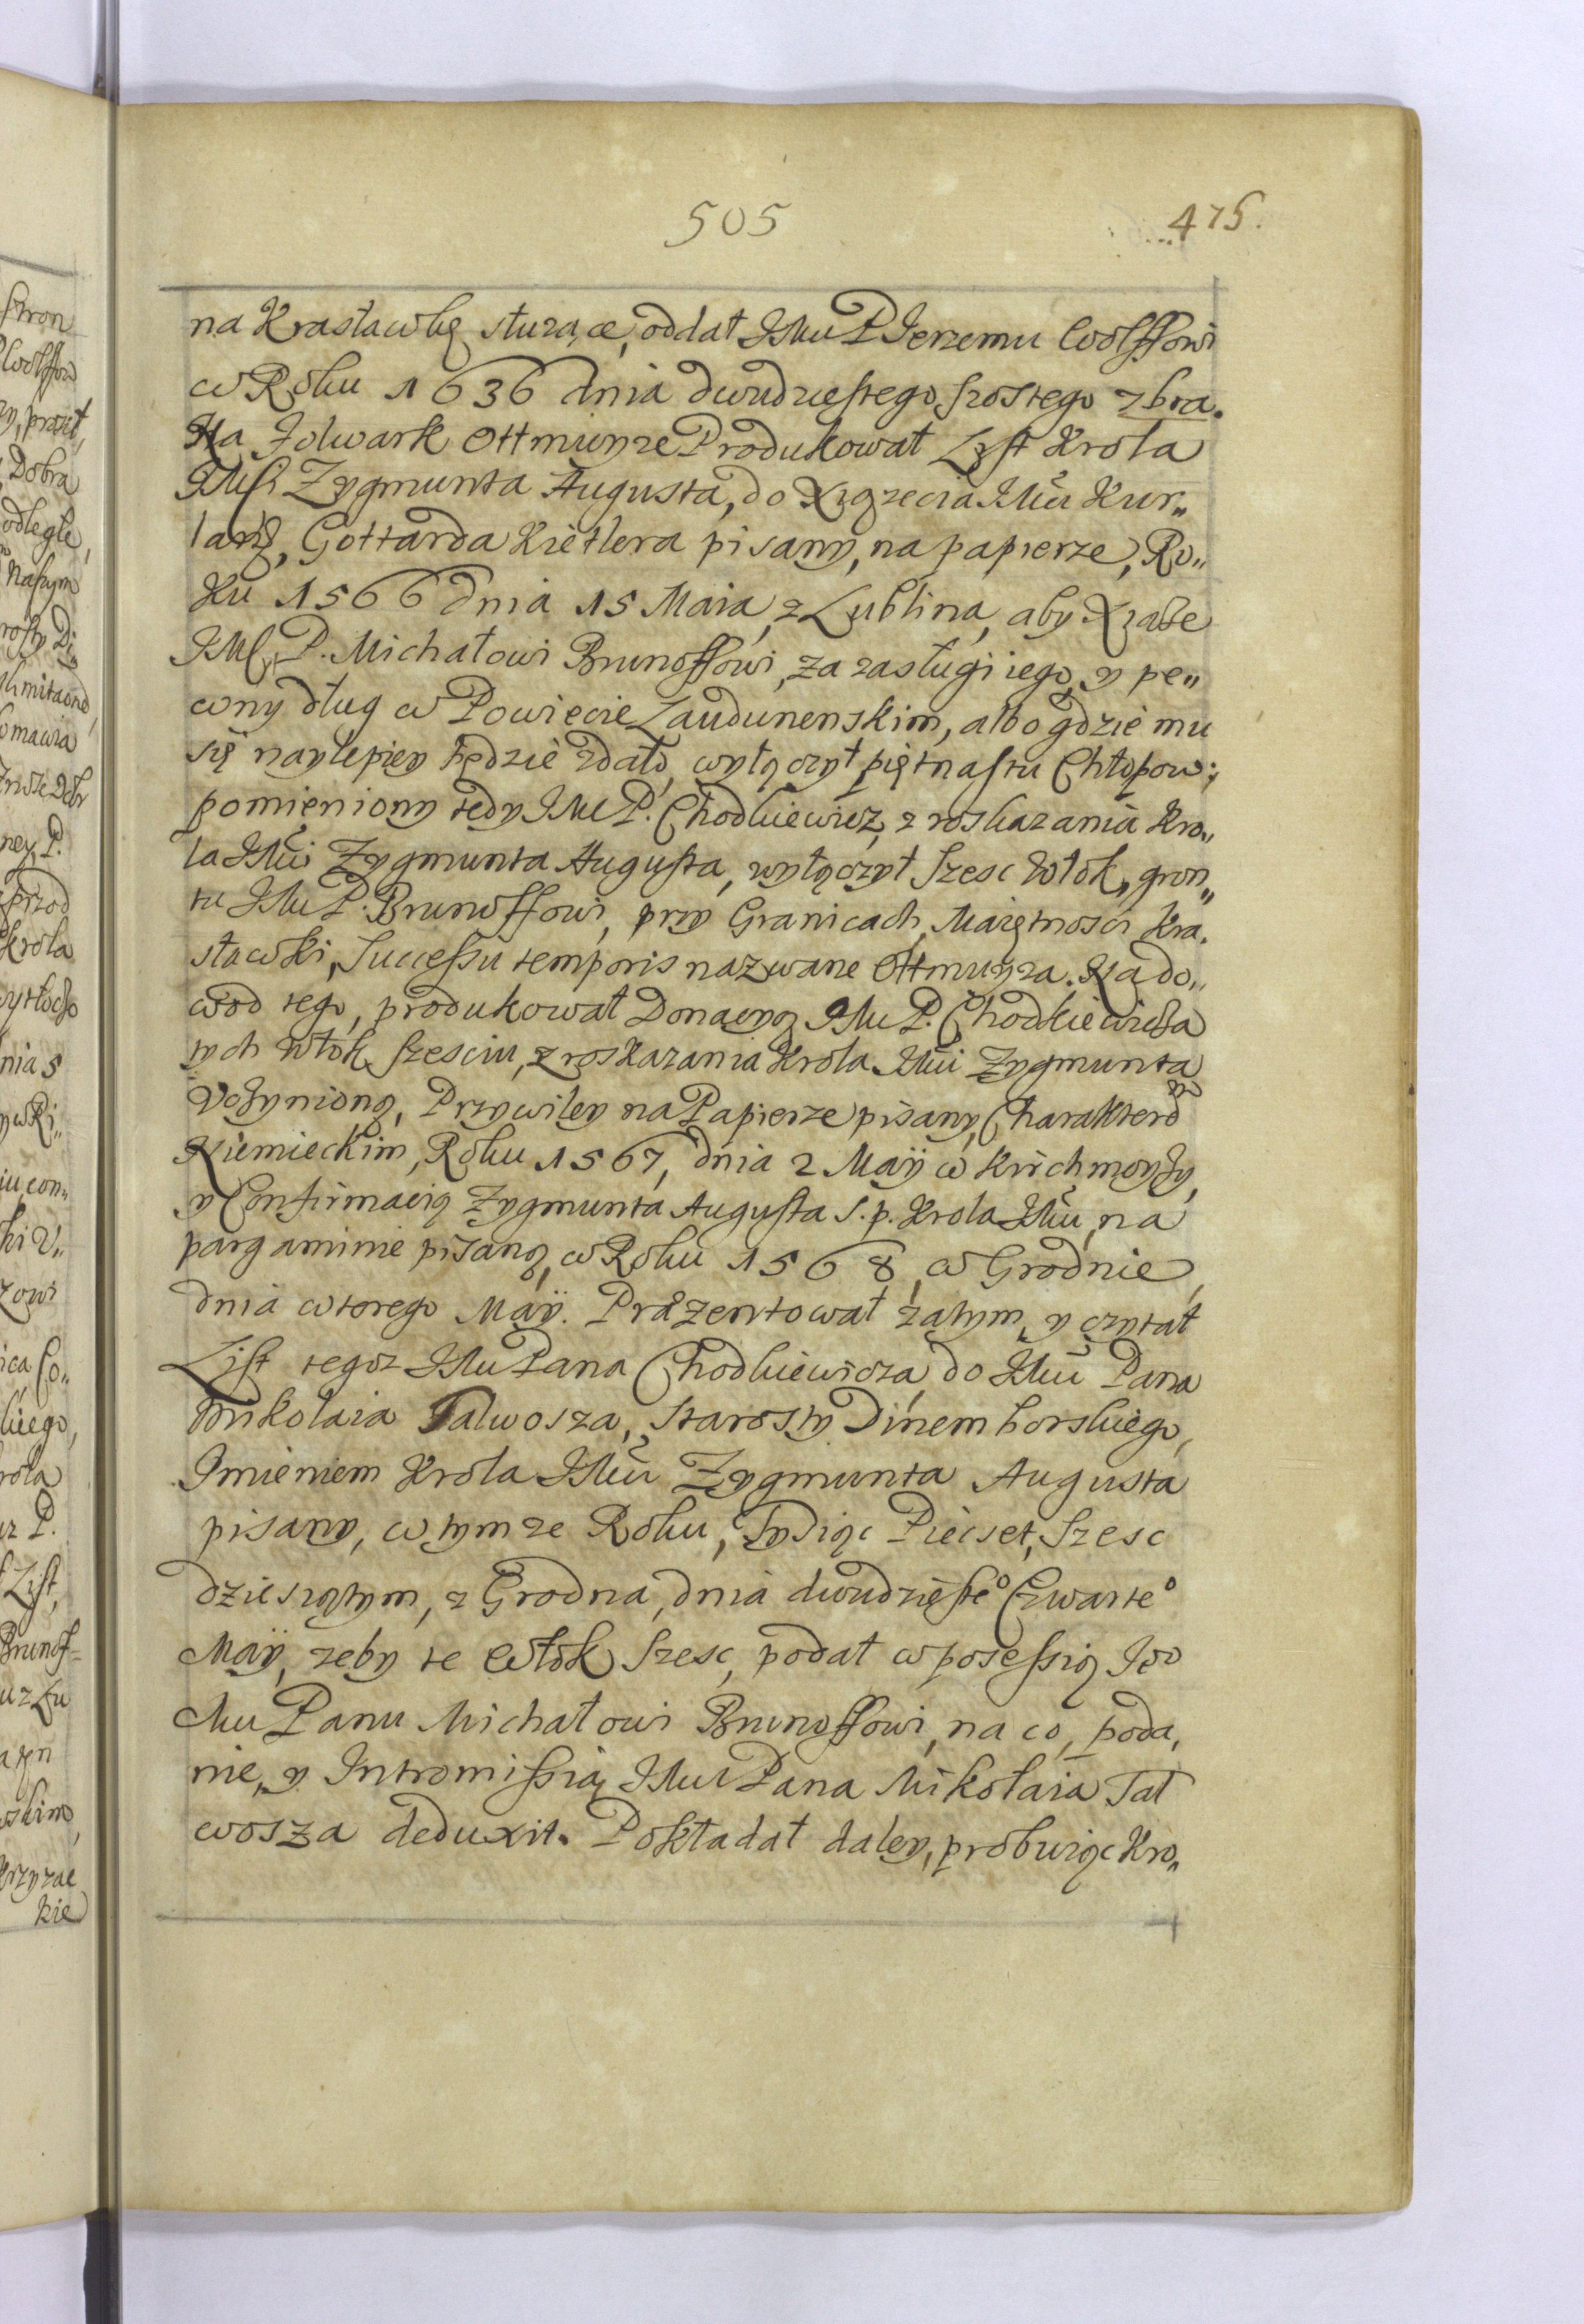 505
475.
na Krasławkę służące, oddał JMu P Jerzemu Wolffowi
w Roku 1636 dnia dwudziestego szostego 7bra.
Na Folwark Ottmuyze Produkował List Krola
JMsi Zygmunta Augusta, do Xiązecia JMci Kur„
landz, Gottarda Kietlera pisany, na papierze, Ro„
Ku 1566 dnia 15 Maia, z Lublina, aby Xiąze
JMſ P. Michałowi Brunoffowi, za zasługi iego, y pe„
wny dług w Powiecie Laudunenskim, albo gdzie mu
się naylepiey będzie zdało, wyłączył piętnastu Chłopow;
pomieniony tedy JMc P. Chodkiewicz, z roskazania Kro„
la JMci Zygmunta Augusta, wyłączył szesc Włok, gron„
tu JMu P. Brunoffowi, przy Granicach, Maiętnosci Kra„
sławki, Successu temporis nazwane Ottmuyza. Na do„
wod tego, produkował Donacyą JMu P. Chodkiewicza
tych Włok szesciu, z roskazania Krola JMci Zygmunta
Vczynioną, Przywiley na Papierze pisany, Charakterem
Niemieckim, Roku 1567, dnia 2 Maÿ w Kirchmoyzy,
y Confirmacią Zygmunta Augusta S. p. Krola JMci, na
pargaminie pisaną, w Roku 1568, w Grodnie,
dnia wtorego Maÿ. Præzentował zatym, y czytał
List tegoz JMu Pana Chodkiewicza, do JMci Pana
Mikolaia Talwosza, Starosty Dinemborskiego,
Imieniem Krola JMci Zygmunta Augusta
pisany, w tymze Roku, Tysiąc Piecset, Szesc
dziesiątym, z Grodna, dnia dwudzieste° Czwarte°
Maÿ, zeby te Włok szesc, podał w posessią Jeo
Mu Panu Michałowi Brunoffowi, na co, poda„
nie, y Intromissią JMu Pana Mikołaia Tal
wosza deduxit. Pokładał daley, probuiąc Kro„